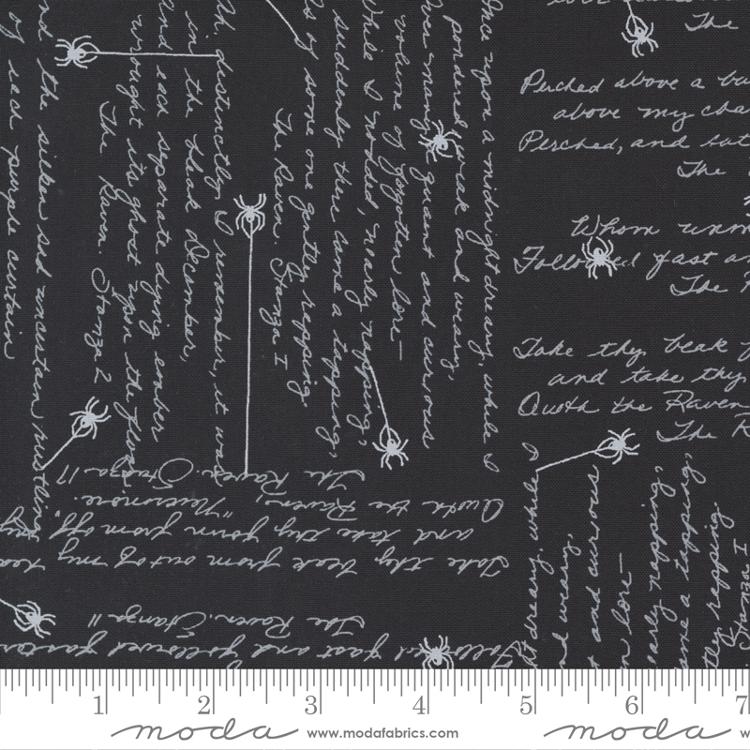 The
Perched above a
above my
Perched, and
The
Whom
Followed fast
The
Take thy beak
and take thy
Quoth the Raven
The
Once upon a midnight dreary, while I
pondered, weak and weary,
Over many quaint and curious
volume of forgotten lore—
While I nodded, nearly napping,
suddenly there came a tapping,
As of some one gently rapping,
The Raven. Stanza I
Ah, distinctly I remember, it was
in the bleak December,
and each separate dying ember
wrought its ghost upon the floor
The Raven. Stanza 2
and the silken sad uncertain rustling
of each purple curtain
Take thy beak from out of my
and take thy form from off
Quoth the Raven, "Nevermore.
The Raven. Stanza 17
Followed fast and followed faster
The Raven. Stanza 11
dreary, while I
and weary,
and curious
lore—
nearly napping,
came a tapping,
gently rapping,
1 2 3 4 5 6 7
moda www.modafabrics.com moda